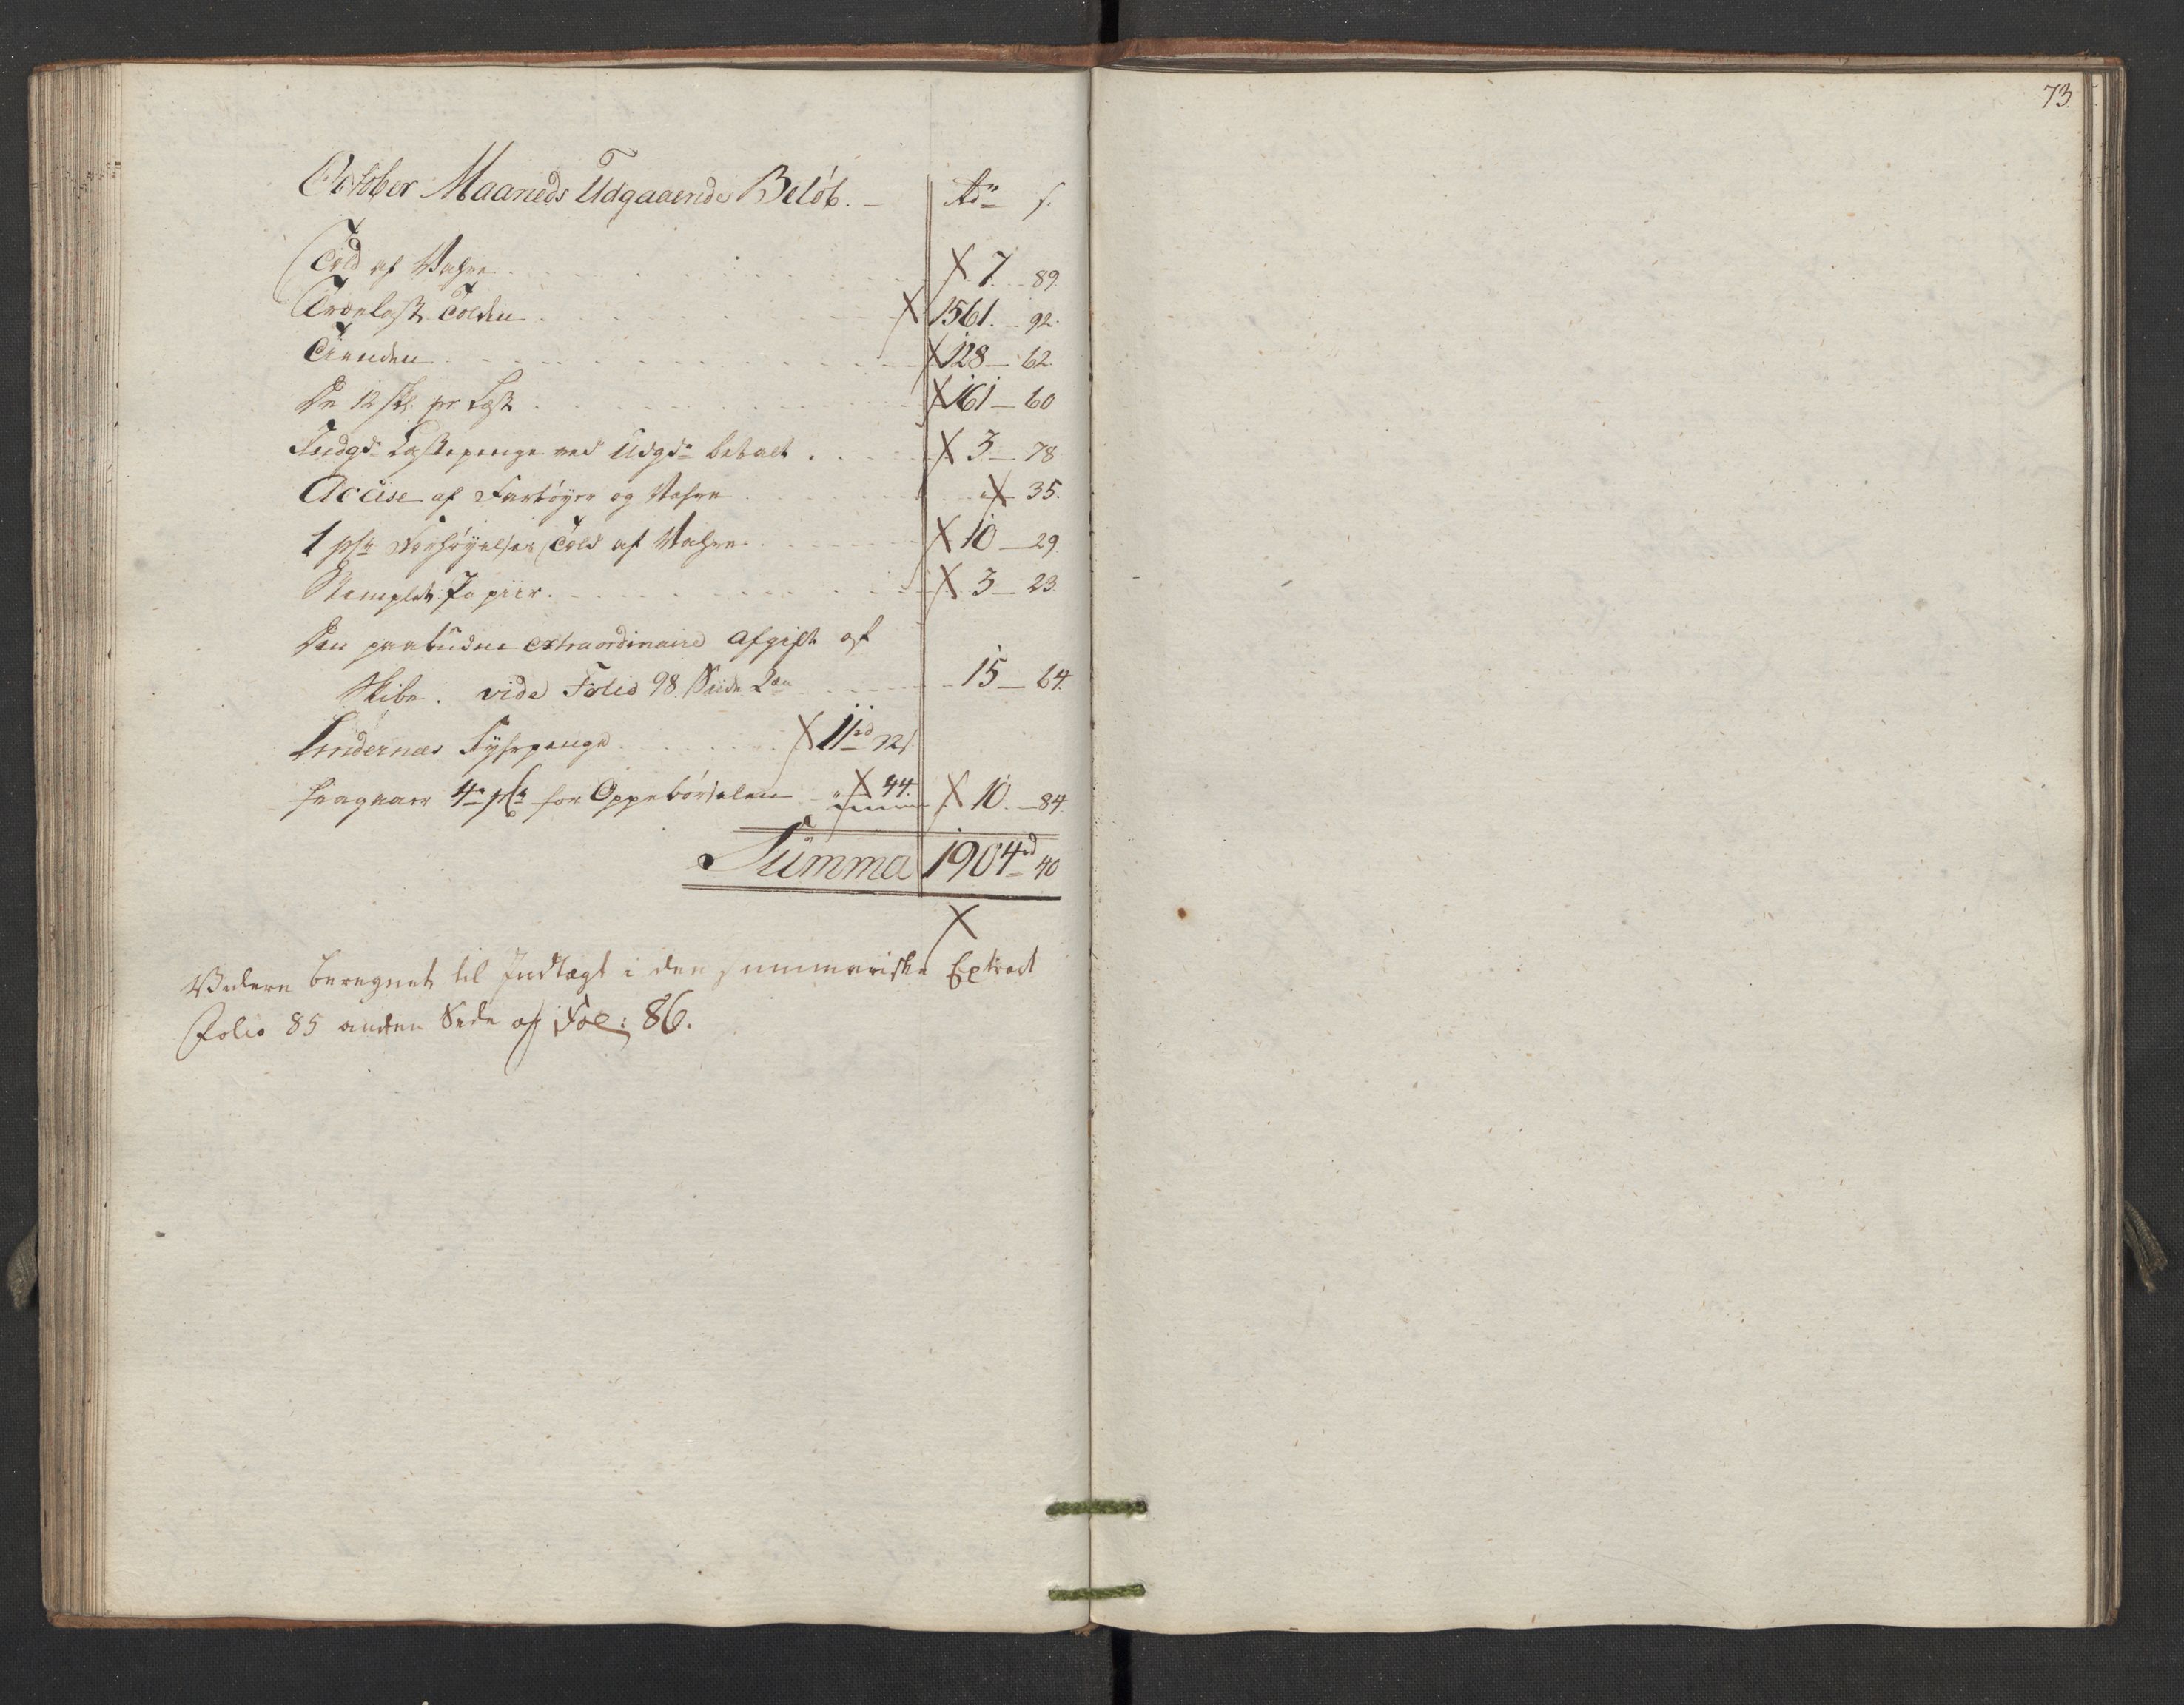 73.
October Maaneds Udgaaende Beløb. — Rd s.
Told af Vahre X 7 89.
Trælast Tolden X 1561. 92.
Tienden X 128 — 62.
De 12 sk. pr. Læst X 161 — 60
Indgd Læstepenge ved Udgd betalt X 3 — 78
Accise af Fartøyer og Vahre X 35.
1 pCt Forhøyelses Told af Vahre X 10 — 29.
Stemplet Papiir X 3 — 23.
Den paabudne extraordinaire Afgift af
Skibe. vide Folio 98. Siide 2den 15 — 64.
Lindernæs Fyhrpenge X 11rd 32s
fragaaer 4 pCt for Oppebørselen X 44. X 10. — 84.
Summa 1904rd 40
X
Videre beregnet til Indtægt i den summariske Extract
Folio 85 anden Side og Fol: 86.